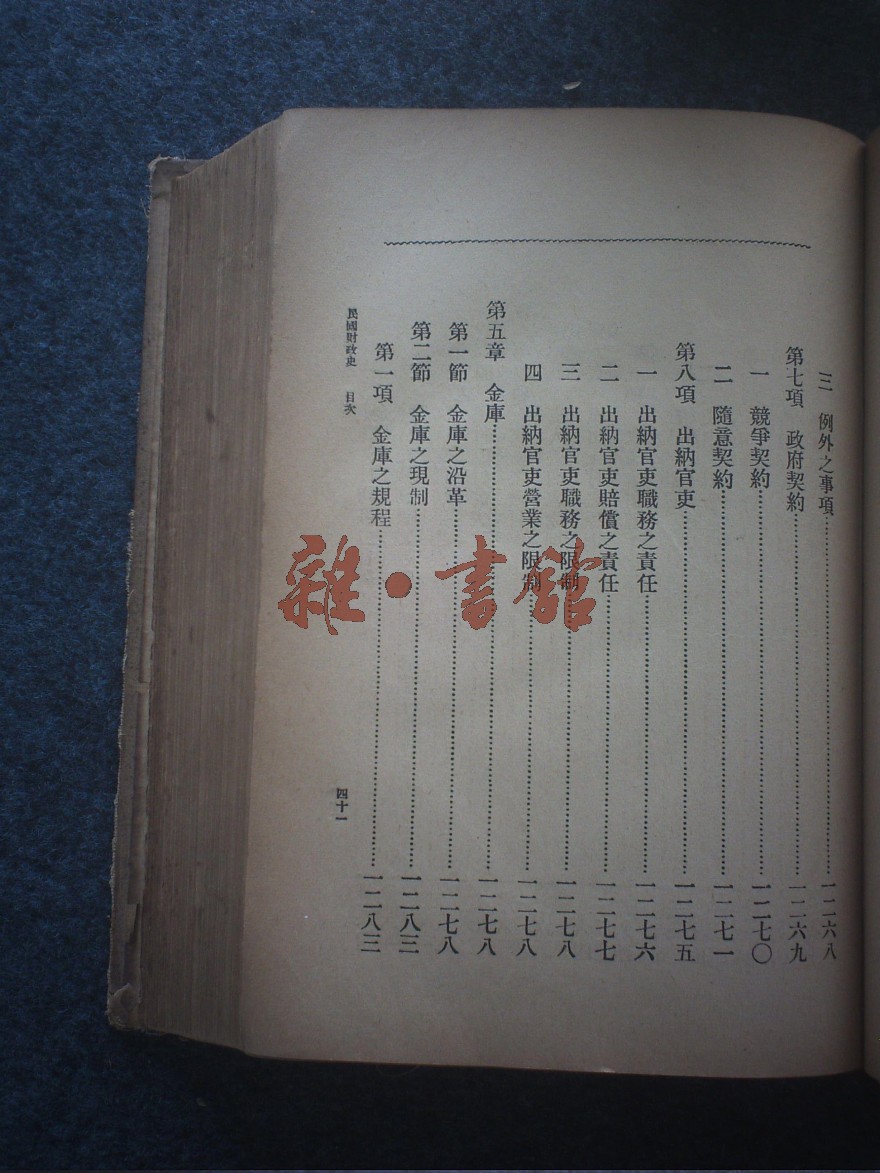 三 例外之事項……一二六八
第七項 政府契約……一二六九
一 競爭契約……一二七〇
二 隨意契約……一二七一
第八項 出納官吏……一二七五
一 出納官吏職務之責任……一二七六
二 出納官吏賠償之責任……一二七七
三 出納官吏職務之限制……一二七八
四 出納官吏營業之限制……一二七八
第五章 金庫……一二七八
第一節 金庫之沿革……一二七八
第二節 金庫之現制……一二八三
第一項 金庫之規程……一二八三
民國財政史 目次 四十一
雜·書館